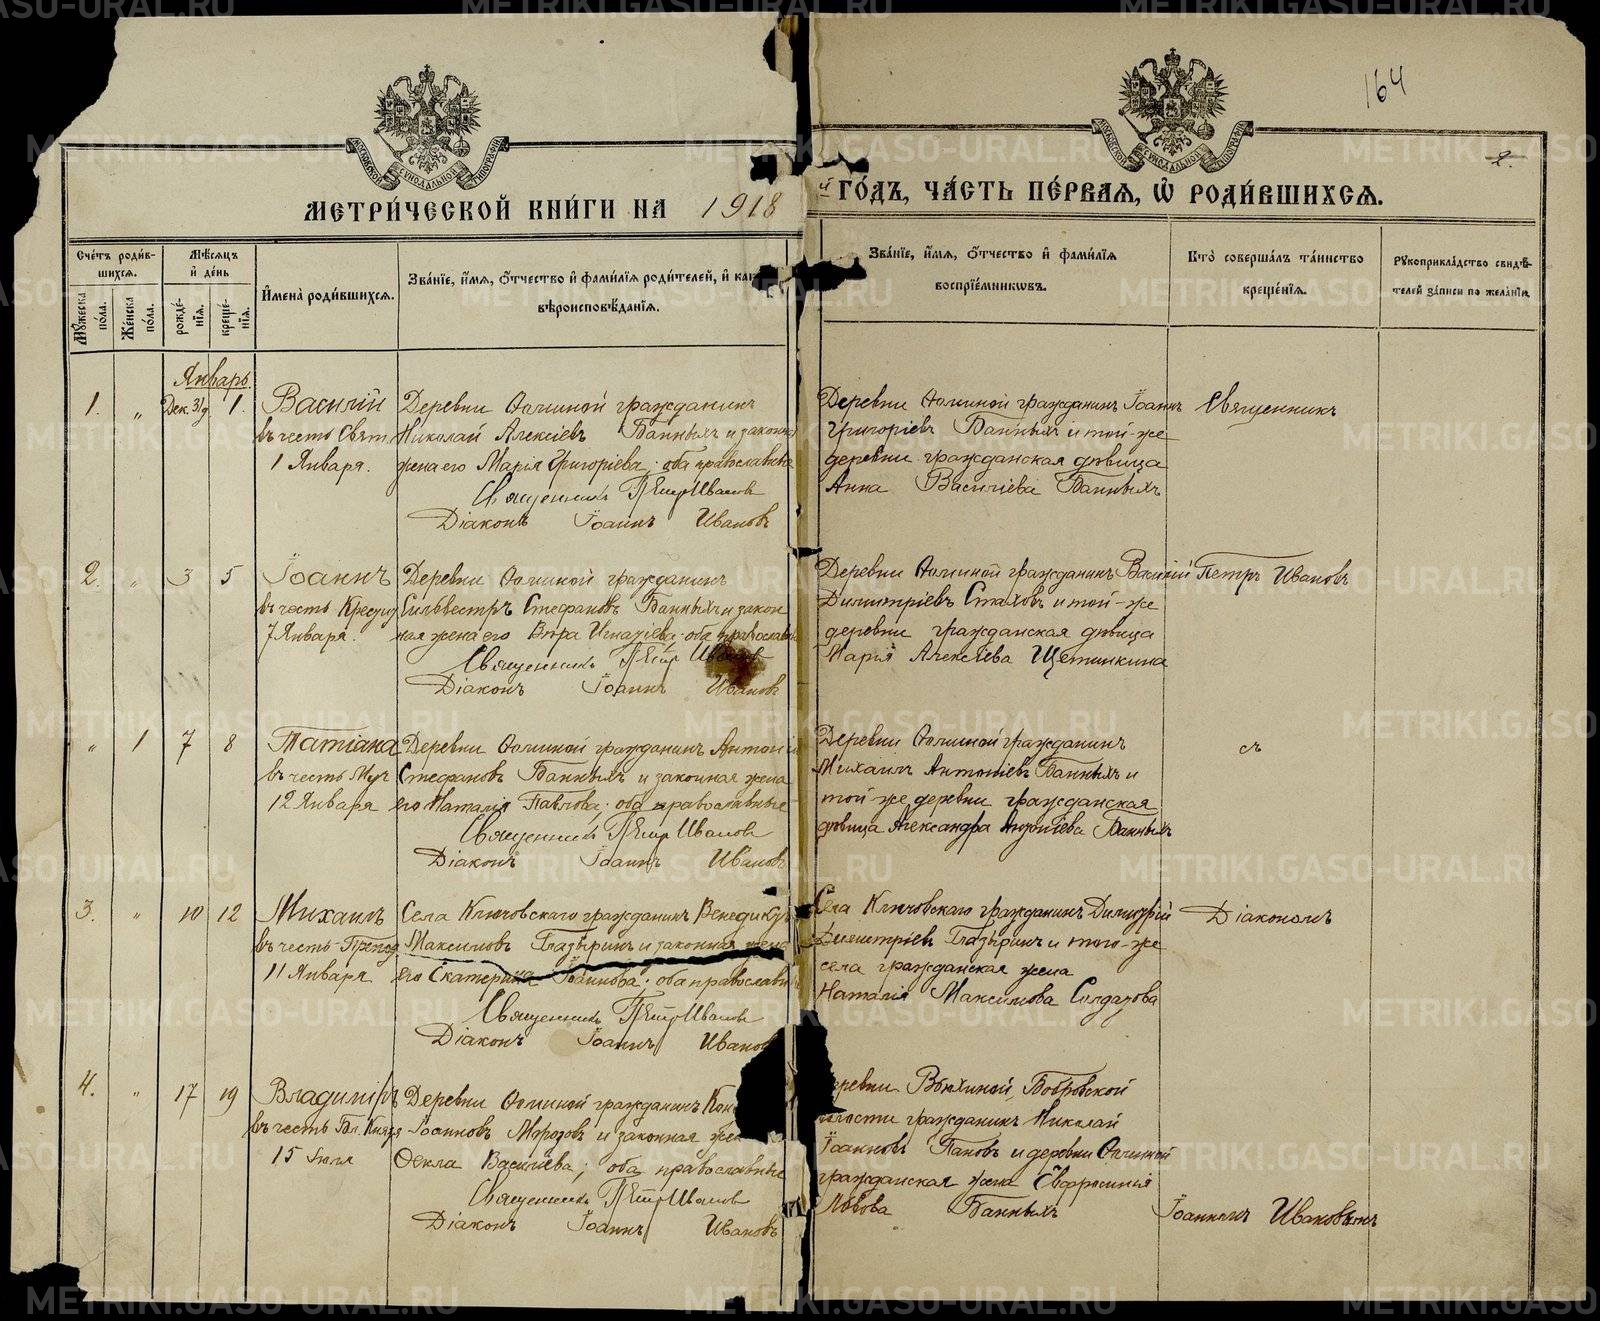 164
2.
МЕТРИ́ЧЕСКОЙ КНИ́ГИ НА 1918
й ГО́ДЪ, ЧА́СТЬ ПЕ́РВАѦ, Ѡ҆ РОДИ́ВШИХСѦ.
Сче́тъ роди́в-
шихсѧ.
Мѣ́сѧцъ
и҆ де́нь
Мꙋ́жеска
по́ла.
Же́нска
по́ла.
рожде́-
нїѧ.
креще́-
нїѧ.
И҆мена̀ роди́вшихсѧ.
Зва́нїе, и҆́мѧ, ѻ҆́тчество и҆ фами́лїѧ роди́телей, и҆ как
вѣроисповѣ́данїѧ.
Зва́нїе, и҆́мѧ, ѻ҆́тчество и҆ фами́лїѧ
воспрїе́мникѡвъ.
Кто̀ соверша́лъ та́инство
креще́нїѧ.
Рꙋкоприкла́дство свидѣ́-
телей за́писи по жела́нїю.
Январь.
1. " Дек. 31 1. Василій
въ честь Свят.
1 Января.
Деревни гражданинъ
Николай Алексіевъ Банныхъ и законн
жена его Марія Григоріева; оба православные
Священникъ Петръ Ивановъ
Діаконъ Іоаннъ Ивановъ
Деревни гражданинъ Іоаннъ
Григоріевъ Банныхъ и той-же
деревни гражданская дѣвица
Анна Василіева Банныхъ
Священникъ
2. " 3 5 Іоаннъ
въ честь
7 Января.
Деревни гражданинъ
Сильвестръ Стефановъ Банныхъ и закон
ная жена его Вѣра Игнатіева; оба православн
Священникъ Петръ Ивановъ
Діаконъ Іоаннъ Ивановъ
Деревни гражданинъ Василій
Димитріевъ Стаховъ и той-же
деревни гражданская дѣвица
Марія Алексіева Щетинкина
Петръ Ивановъ
" 1 7 8 Татіана
въ честь Муч
12 Января
Деревни гражданинъ Антоній
Стефановъ Банныхъ и законная жена
его Наталія Павлова; оба православные
Священникъ Петръ Ивановъ
Діаконъ Іоаннъ Ивановъ
Деревни гражданинъ
Михаилъ Антоніевъ Банныхъ и
той-же деревни гражданская
дѣвица Александра Антоніева Банныхъ
съ
3. " 10 12 Михаилъ
въ честь Препод.
11 Января
Села Ключевскаго гражданинъ Венедиктъ
Максимовъ Глазыринъ и законная жена
его Екатерина Іоаннова; оба православн
Священникъ Петръ Ивановъ
Діаконъ Іоаннъ Иванов
Села Ключевскаго гражданинъ Димитрій
Димитріевъ Глазыринъ и того-же
села гражданская жена
Наталія Максимова Солдатова
Діакономъ
4. " 17 19 Владиміръ
въ честь Бл. Князя
15 Іюля
Деревни гражданинъ Кон
Іоанновъ Морозовъ и законная же
Ѳекла Василіева; оба православные
Священникъ Петръ Ивановъ
Діаконъ Іоаннъ Ивановъ
еревни Бобровской
лости гражданинъ Николай
Іоанновъ Пановъ и деревни
гражданская жена Евфросинія
Львова Банныхъ
Іоанномъ Ивановымъ